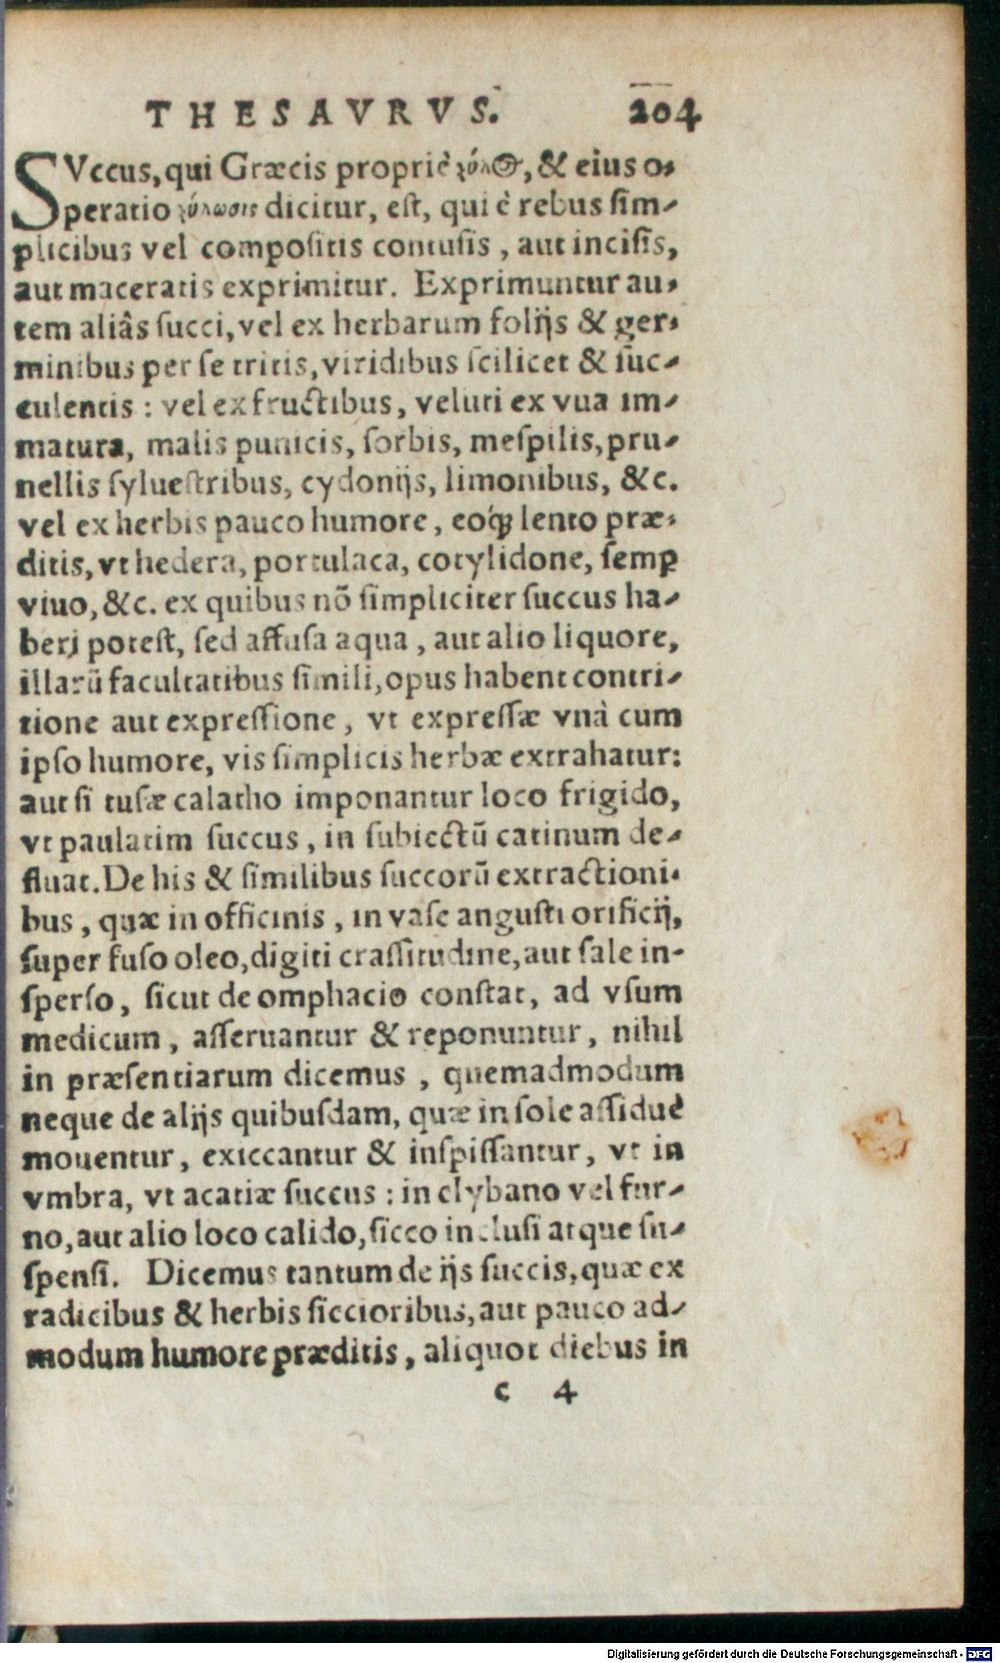 THESAVRVS. 204
SVccus, qui Græcis propriè χύλος, & eius o-
peratio χύλωσις dicitur, est, qui è rebus sim-
plicibus vel compositis contusis, aut incisis,
aut maceratis exprimitur. Exprimuntur au-
tem aliâs succi, vel ex herbarum folijs & ger-
minibus per se tritis, viridibus scilicet & suc-
culentis : vel ex fructibus, veluti ex vua im-
matura, malis punicis, sorbis, mespilis, pru-
nellis syluestribus, cydonijs, limonibus, &c.
vel ex herbis pauco humore, eoq́ꝫ lento præ-
ditis, vt hedera, portulaca, cotylidone, semꝑ
viuo, &c. ex quibus nõ simpliciter succus ha-
beri potest, sed affusa aqua, aut alio liquore,
illarũ facultatibus simili, opus habent contri-
tione aut expressione, vt expressæ vnà cum
ipso humore, vis simplicis herbæ extrahatur:
aut si tusæ calatho imponantur loco frigido,
vt paulatim succus, in subiectũ catinum de-
fluat. De his & similibus succorũ extractioni-
bus, quæ in officinis, in vase angusti orificij,
super fuso oleo, digiti crassitudine, aut sale in-
sperso, sicut de omphacio constat, ad vsum
medicum, asseruantur & reponuntur, nihil
in præsentiarum dicemus, quemadmodum
neque de alijs quibusdam, quæ in sole assiduè
mouentur, exiccantur & inspissantur, vt in
vmbra, vt acatiæ succus : in clybano vel fur-
no, aut alio loco calido, sicco inclusi atque su-
spensi. Dicemus tantum de ijs succis, quæ ex
radicibus & herbis siccioribus, aut pauco ad-
modum humore præditis, aliquot diebus in
c 4
Digitalisierung gefördert durch die Deutsche Forschungsgemeinschaft - DFG